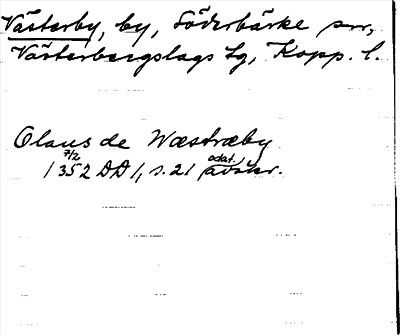 Västerby, by, Söderbärke sn,
Västerbergslags tg, Kopp. l.
Olaus de Wæstræby
7/2 odat.
1352 DD 1, s. 21 avskr.